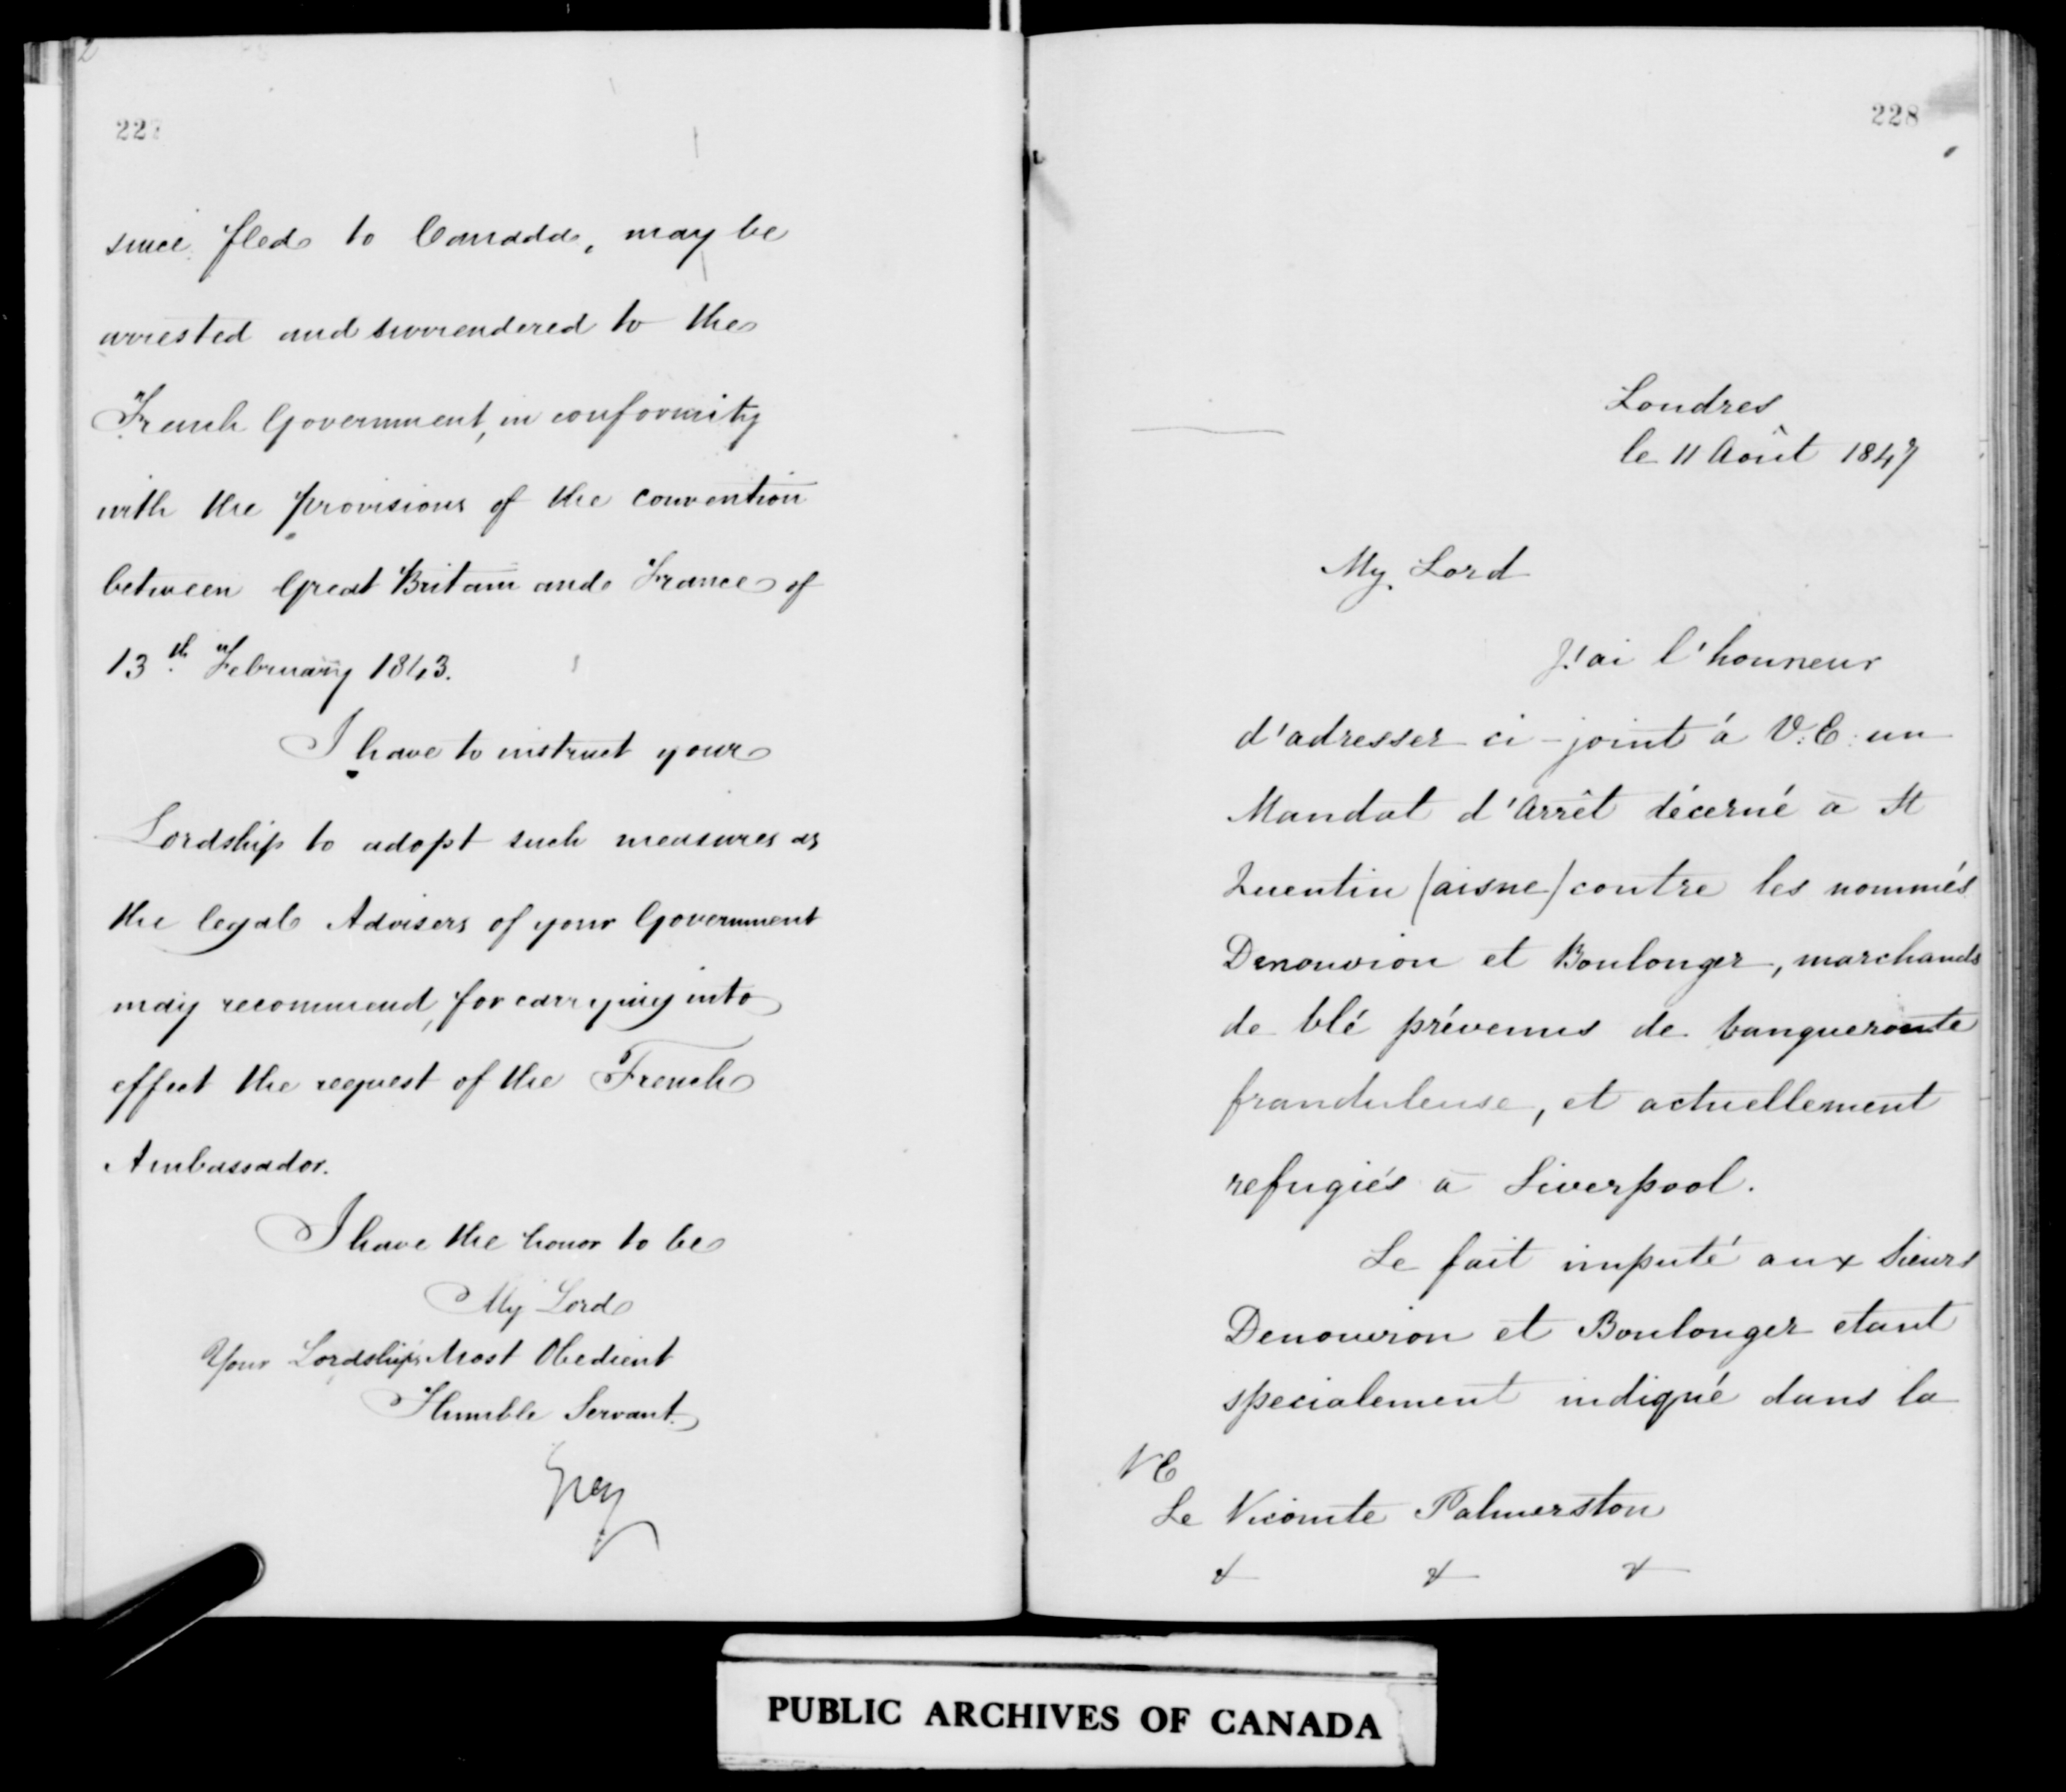 227
since fled to Canada, may be
arrested and surrendered to the
French Government, in conformity
with the provisions of the convention
between Great Britain and France of
13th February 1843.
I have to instruct your
Lordship to adopt such measures as
the legal Advisers of your Government
may recommend, for carrying into
effect the request of the French
Ambassador.
I have the honor to be
My Lord
Your Lordship's Most Obedient
Humble Servant.
Grey
228
Londres
le 11 Août 1847
My Lord
J'ai l'honneur
d'adresser ci-joint á V.E. un
Mandat d'Arrêt décerné à St
Quentin (aisne) contre les nommés
Denouvion et Boulonger, marchands
de blé prévenus de banqueroute
franduleuse, et actuellement
refugiés à Liverpool.
Le fait imputé aux Sieurs
Denouvion et Boulonger etant
specialement indiqué dans la
VE
Le Vicomte Palmerston
& & &
PUBLIC ARCHIVES OF CANADA